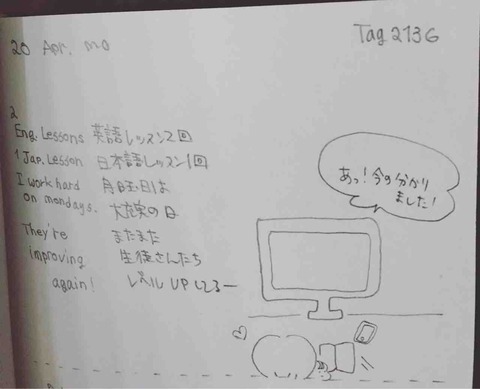 20 Apr. mo
Tag 2136
2
Eng. Lessons 英語レッスン2回
1 Jap. Lesson 日本語レッスン1回
I work hard 月曜日は
on mondays. 大充実の日
They're またまた
improving 生徒さんたち
again! レベル UP してるー
あっ!今の分かり
ました!